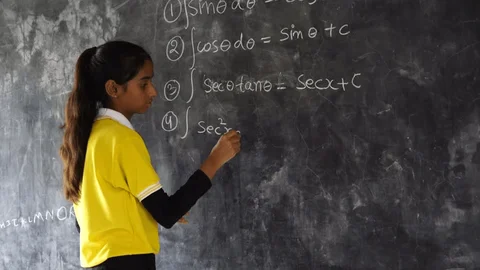 ① ∫sinθdθ =
② ∫cosθdθ = sinθ + C
③ ∫ Secθtanθ = Secx+C
④ ∫ Sec²x